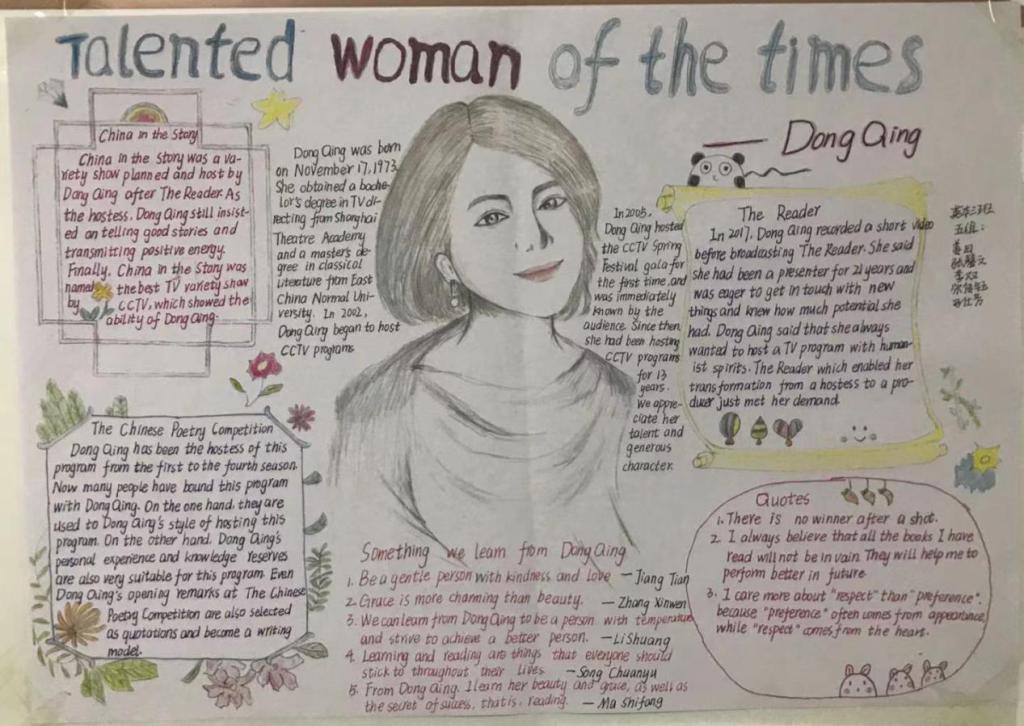 Talented woman of the times
— Dong Qing
China in the Story
China in the Story was a va-
riety show planned and host by
Dong Qing after The Reader. As
the hostess, Dong Qing still insist-
ed on telling good stories and
transmitting positive energy.
Finally, China in the Story was
named the best TV variety show
by CCTV, which showed the
ability of Dong Qing.
Dong Qing was born
on November 17, 1973.
She obtained a bache-
lor's degree in TV di-
recting from Shanghai
Theatre Academy
and a master's de-
gree in classical
literature from East
China Normal Uni-
versity. In 2002,
Dong Qing began to host
CCTV programs
In 2005,
Dong Qing hosted
the CCTV Spring
Festival gala for
the first time, and
was immediately
known by the
audience. Since then
she had been hosting
CCTV programs
for 13
years.
We appre-
ciate her
talent and
generous
character.
The Reader
In 2017, Dong Qing recorded a short video
before broadcasting The Reader. She said
she had been a presenter for 21 years and
was eager to get in touch with new
things and knew how much potential she
had. Dong Qing said that she always
wanted to host a TV program with human-
ist spirits. The Reader which enabled her
transformation from a hostess to a pro-
ducer just met her demand.
五组：
The Chinese Poetry Competition
Dong Qing has been the hostess of this
program from the first to the fourth season.
Now many people have bound this program
with Dong Qing. On the one hand, they are
used to Dong Qing's style of hosting this
program. On the other hand, Dong Qing's
personal experience and knowledge reserves
are also very suitable for this program. Even
Dong Qing's opening remarks at The Chinese
Poetry Competition are also selected
as quotations and become a writing
model.
Something we learn from Dong Qing
1. Be a gentle person with kindness and love — Jiang Tian
2. Grace is more charming than beauty. — Zhang Xinwen
3. We can learn from Dong Qing to be a person with temperature
and strive to achieve a better person. — Li Shuang
4. Learning and reading are things that everyone should
stick to throughout their lives — Song Chuanyu
5. From Dong Qing, I learn her beauty and grace, as well as
the secret of success, that is, reading. — Ma Shifang
Quotes
1. There is no winner after a shot.
2. I always believe that all the books I have
read will not be in vain. They will help me to
perform better in future
3. I care more about "respect" than "preference".
because "preference" often comes from appearance,
while "respect" comes from the heart.